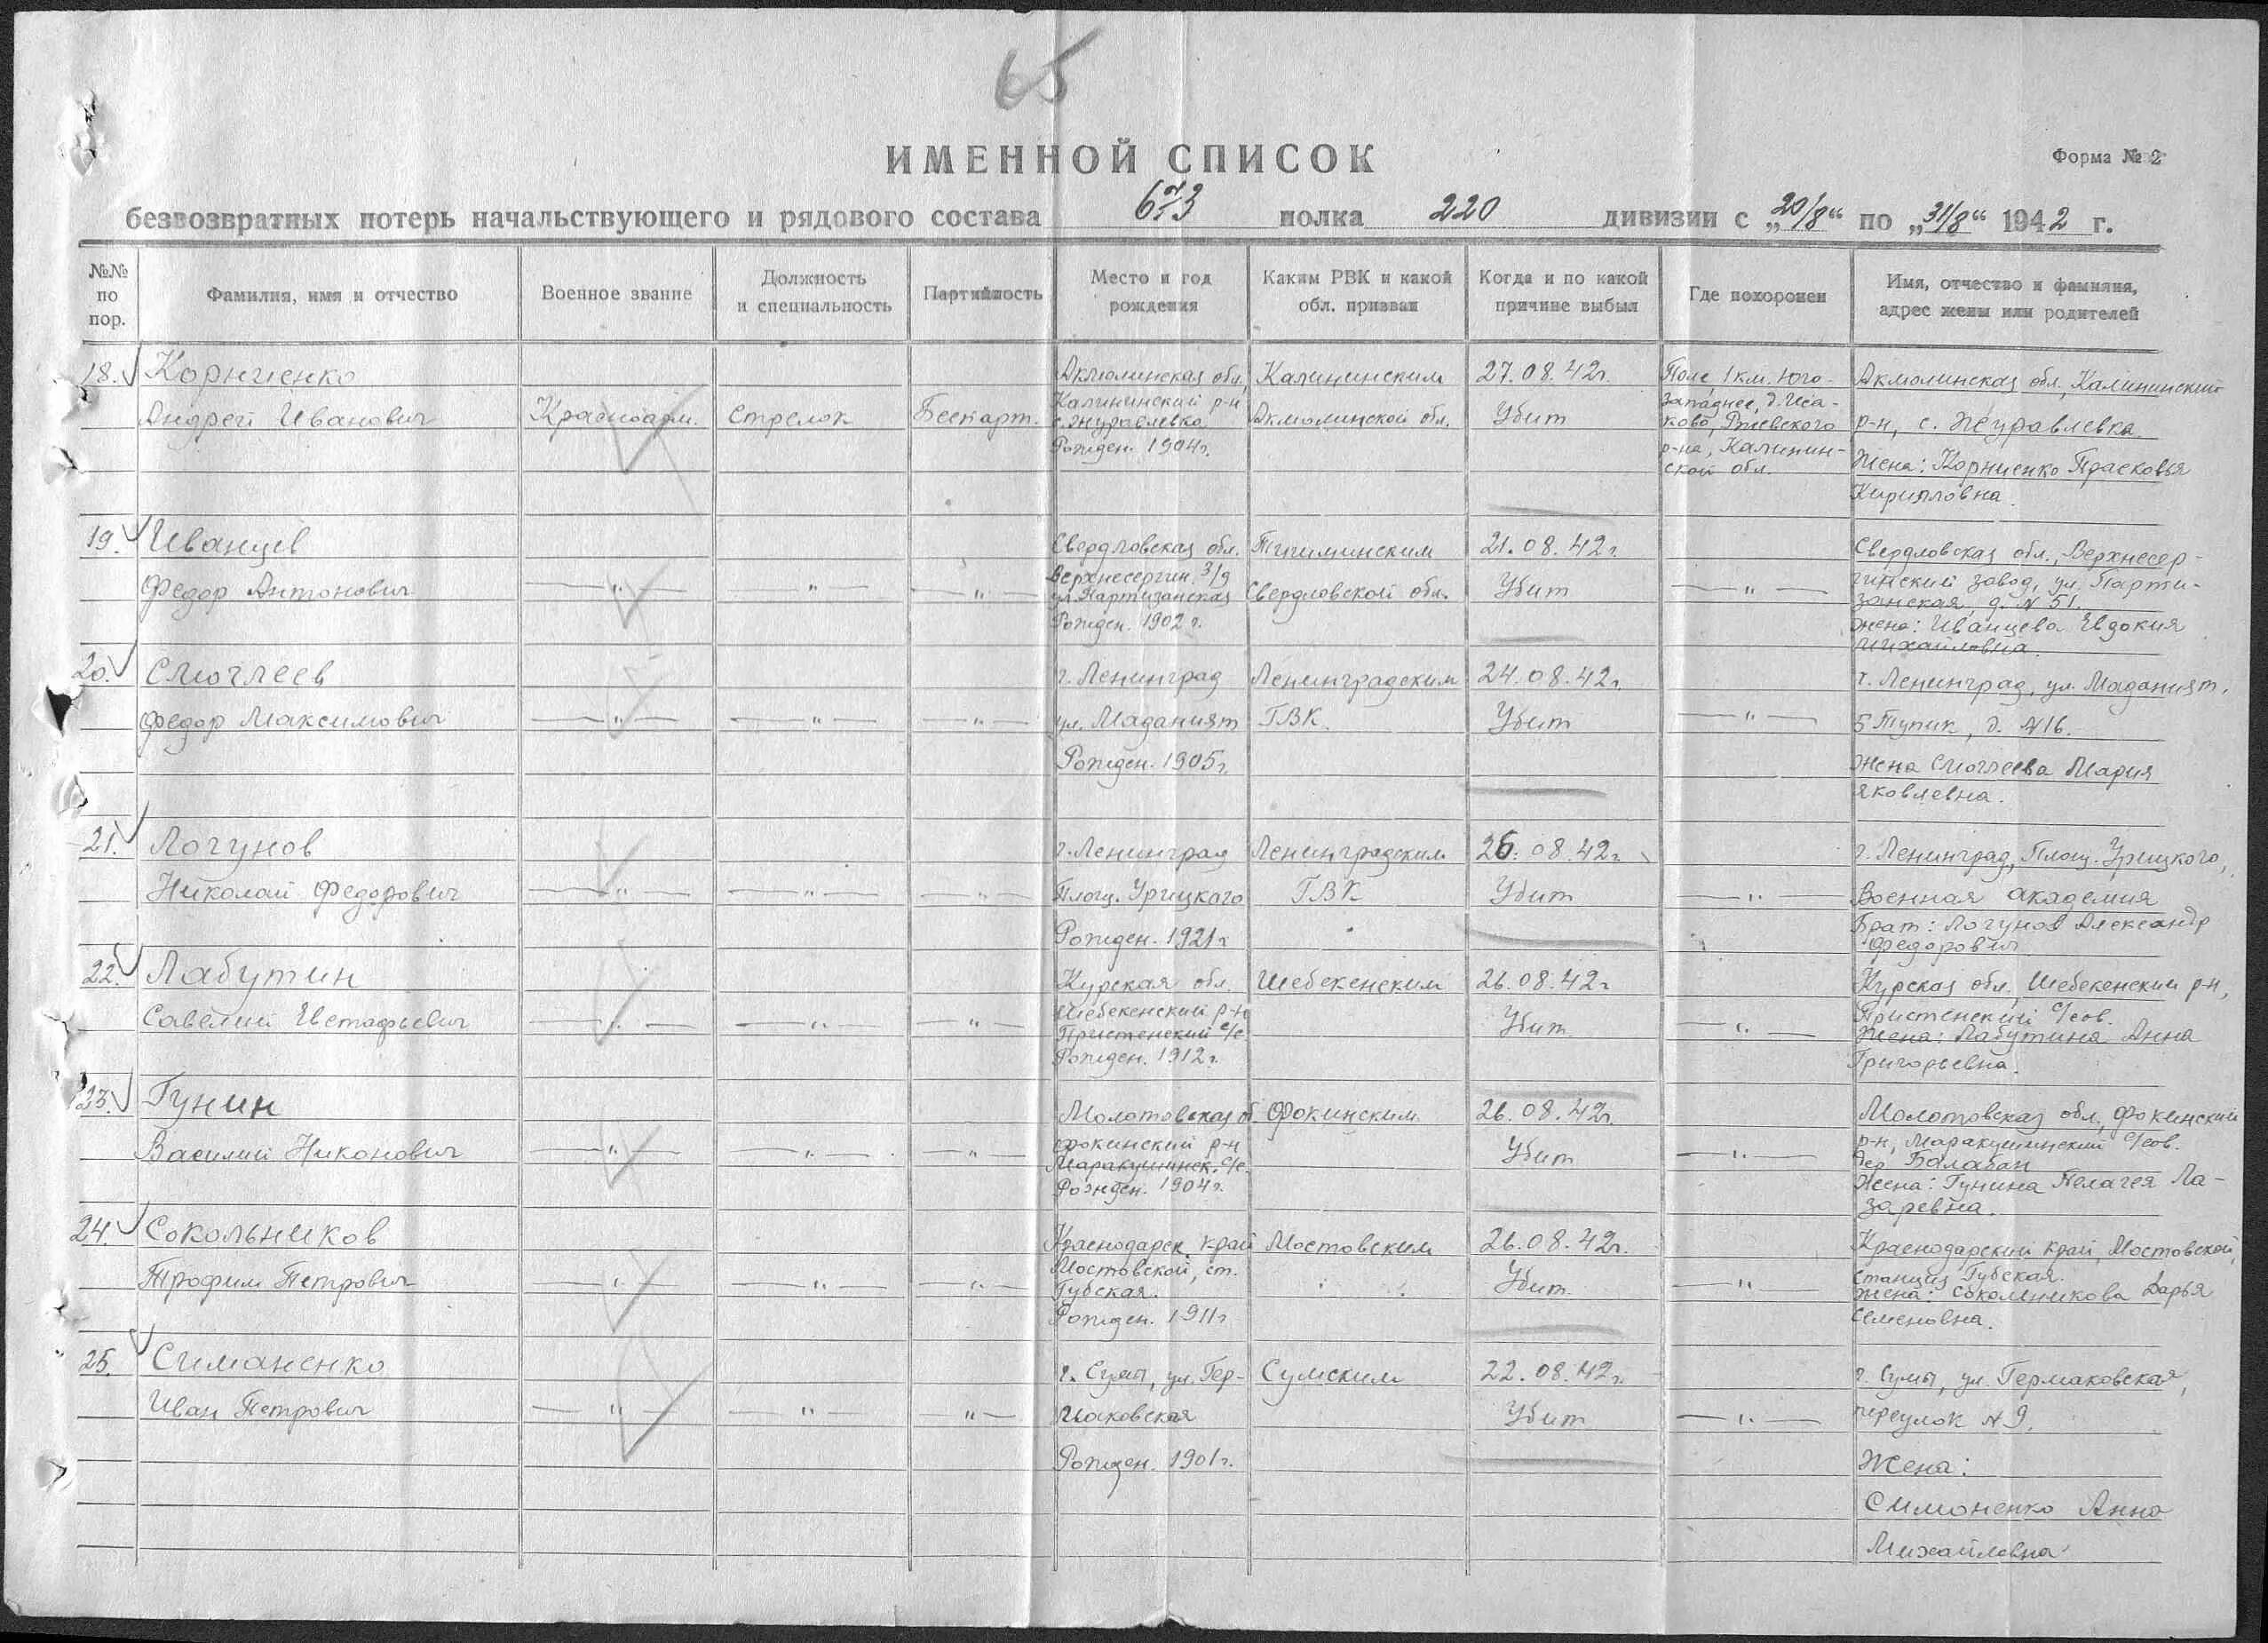 65
ИМЕННОЙ СПИСОК
Форма № 2
безвозвратных потерь начальствующего и рядового состава 673 полка 220 дивизии с „20/8“ по „31/8“ 1942 г.
№№ по пор.
Фамилия, имя и отчество
Военное звание
Должность и специальность
Партийность
Место и год рождения
Каким РВК и какой обл. призван
Когда и по какой причине выбыл
Где похоронен
Имя, отчество и фамилия, адрес жены или родителей
18. Корниенко
Андрей Иванович
Красноарм.
Стрелок
Беспарт.
Акмолинская обл.
Калининский р-н
с. Журавлевка
Рожден. 1904г.
Калининским
Акмолинской обл.
27.08.42г.
Убит
Поле, 1 км. Юго-
западнее, д. Иса-
ково, Ржевского
р-на, Калинин-
ской обл.
Акмолинская обл., Калининский
р-н, с. Журавлевка
Жена: Корниенко Прасковья
Кирилловна.
19. Иванцев
Федор Антонович
—„—
—„—
—„—
Свердловская обл.
Верхнесергин. з/д
ул. Партизанская
Рожден. 1902 г.
Свердловской обл.
21.08.42г.
Убит
—„—
Свердловская обл., Верхнесер-
гинский завод, ул. Парти-
занская, д. N 51.
жена: Иванцева Евдокия
Михайловна.
20. Смоглеев
Федор Максимович
—„—
—„—
—„—
г. Ленинград
ул. Маданият
Рожден. 1905г.
Ленинградским
ГВК.
24.08.42г.
Убит
—„—
г. Ленинград, ул. Маданият,
5 Тупик, д. N16.
Жена Смоглеева Мария
Яковлевна.
21. Логунов
Николай Федорович
—„—
—„—
—„—
г. Ленинград
Площ. Урицкаго
Рожден. 1921г
Ленинградским
ГВК
26.08.42г.
Убит
—„—
г. Ленинград, Площ. Урицкого,
Военная академия
Брат: Логунов Александр
Федорович
22. Лабутин
Савелий Евстафьевич
—„—
—„—
—„—
Курская обл.
Шебекенский р-н
Пристенский с/с
Рожден. 1912г.
Шебекенским
26.08.42г
Убит
—„—
Курская обл., Шебекенский р-н,
Пристенский с/сов.
Жена: Лабутина Анна
Григорьевна.
23. Гунин
Василий Никонович
—„—
—„—
—„—
Молотовская об
Фокинский р-н
Маракушинск. с/с.
Рожден. 1904г.
Фокинским
26.08.42г.
Убит
—„—
Молотовская обл., Фокинский
р-н, Маракушинский с/сов.
дер. Балабан
Жена: Гунина Пелагея Ла-
заревна.
24. Сокольников
Трофим Петрович
—„—
—„—
—„—
Краснодарск. край
Мостовской, ст.
Губская.
Рожден. 1911г
Мостовским
26.08.42г.
Убит.
—„—
Краснодарский край, Мостовской,
Станция Губская.
жена: Сокольникова Дарья
Семеновна.
25. Симаненко
Иван Петрович
—„—
—„—
—„—
г. Сумы, ул. Гер-
маковская
Рожден. 1901г.
Сумским
22.08.42г.
Убит
—„—
г. Сумы, ул. Гермаковская,
переулок N 9.
Жена:
Симоненко Анна
Михайловна